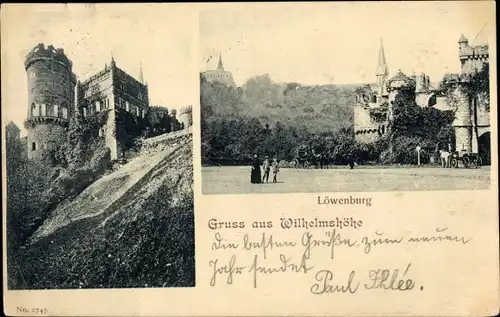 Löwenburg
Gruss aus Wilhelmshöhe
Die besten Grüße zum neuen
Jahr sendet
Paul Ihlée.
No. 0745